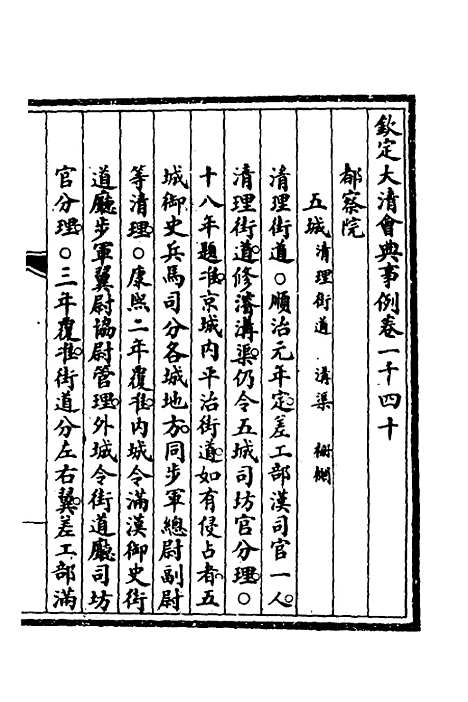 欽定大清會典事例卷一千四十
都察院
五城清理街道 溝渠 柵欄
清理街道○順治元年定差工部漢司官一人。
清理街道。修濬溝渠。仍令五城司坊官分理。○
十八年題准。京城內平治街道。如有侵占者。五
城御史兵馬司分各城地方。同步軍總尉副尉
等清理。○康熙二年覆准。內城令滿漢御史街
道廳步軍翼尉協尉管理。外城令街道廳司坊
官分理。○三年覆准。街道分左右翼。差工部滿